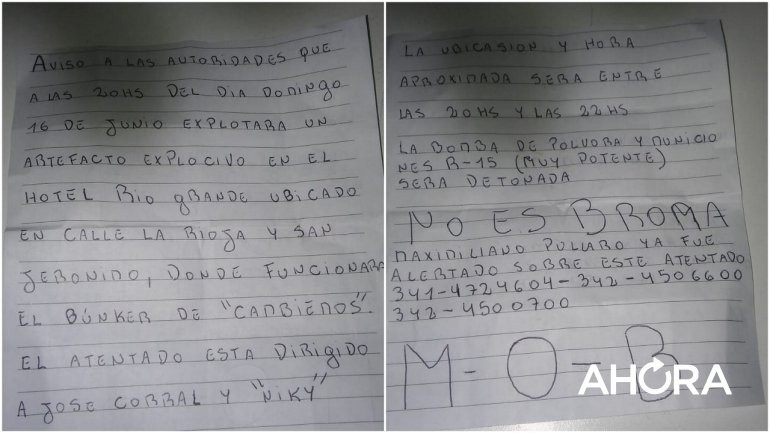 AVISO A LAS AUTORIDADES QUE
A LAS 20HS DEL DIA DOMINGO
16 DE JUNIO EXPLOTARA UN
ARTEFACTO EXPLOCIVO EN EL
HOTEL RIO GRANDE UBICADO
EN CALLE LA RIOJA Y SAN
JERONIMO, DONDE FUNCIONARA
EL BÚNKER DE "CAMBIEMOS".
EL ATENTADO ESTA DIRIGIDO
A JOSE CORRAL Y "NIKY"
LA UBICASION Y HORA
APROXIMADA SERA ENTRE
LAS 20HS Y LAS 22HS
LA BOMBA DE POLVORA Y MUNICIO
NES R-15 (MUY POTENTE)
SERA DETONADA
NO ES BROMA
MAXIMILIANO PULLARO YA FUE
ALERTADO SOBRE ESTE ATENTADO
341-4724604-342-4506600
342-4500700
M-O-B
AHORA